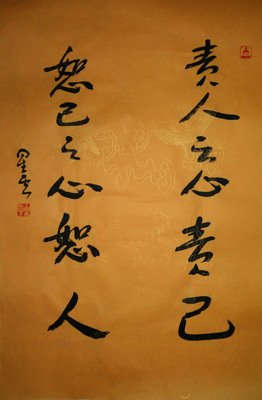 责人之心责己
恕己之心恕人
星云